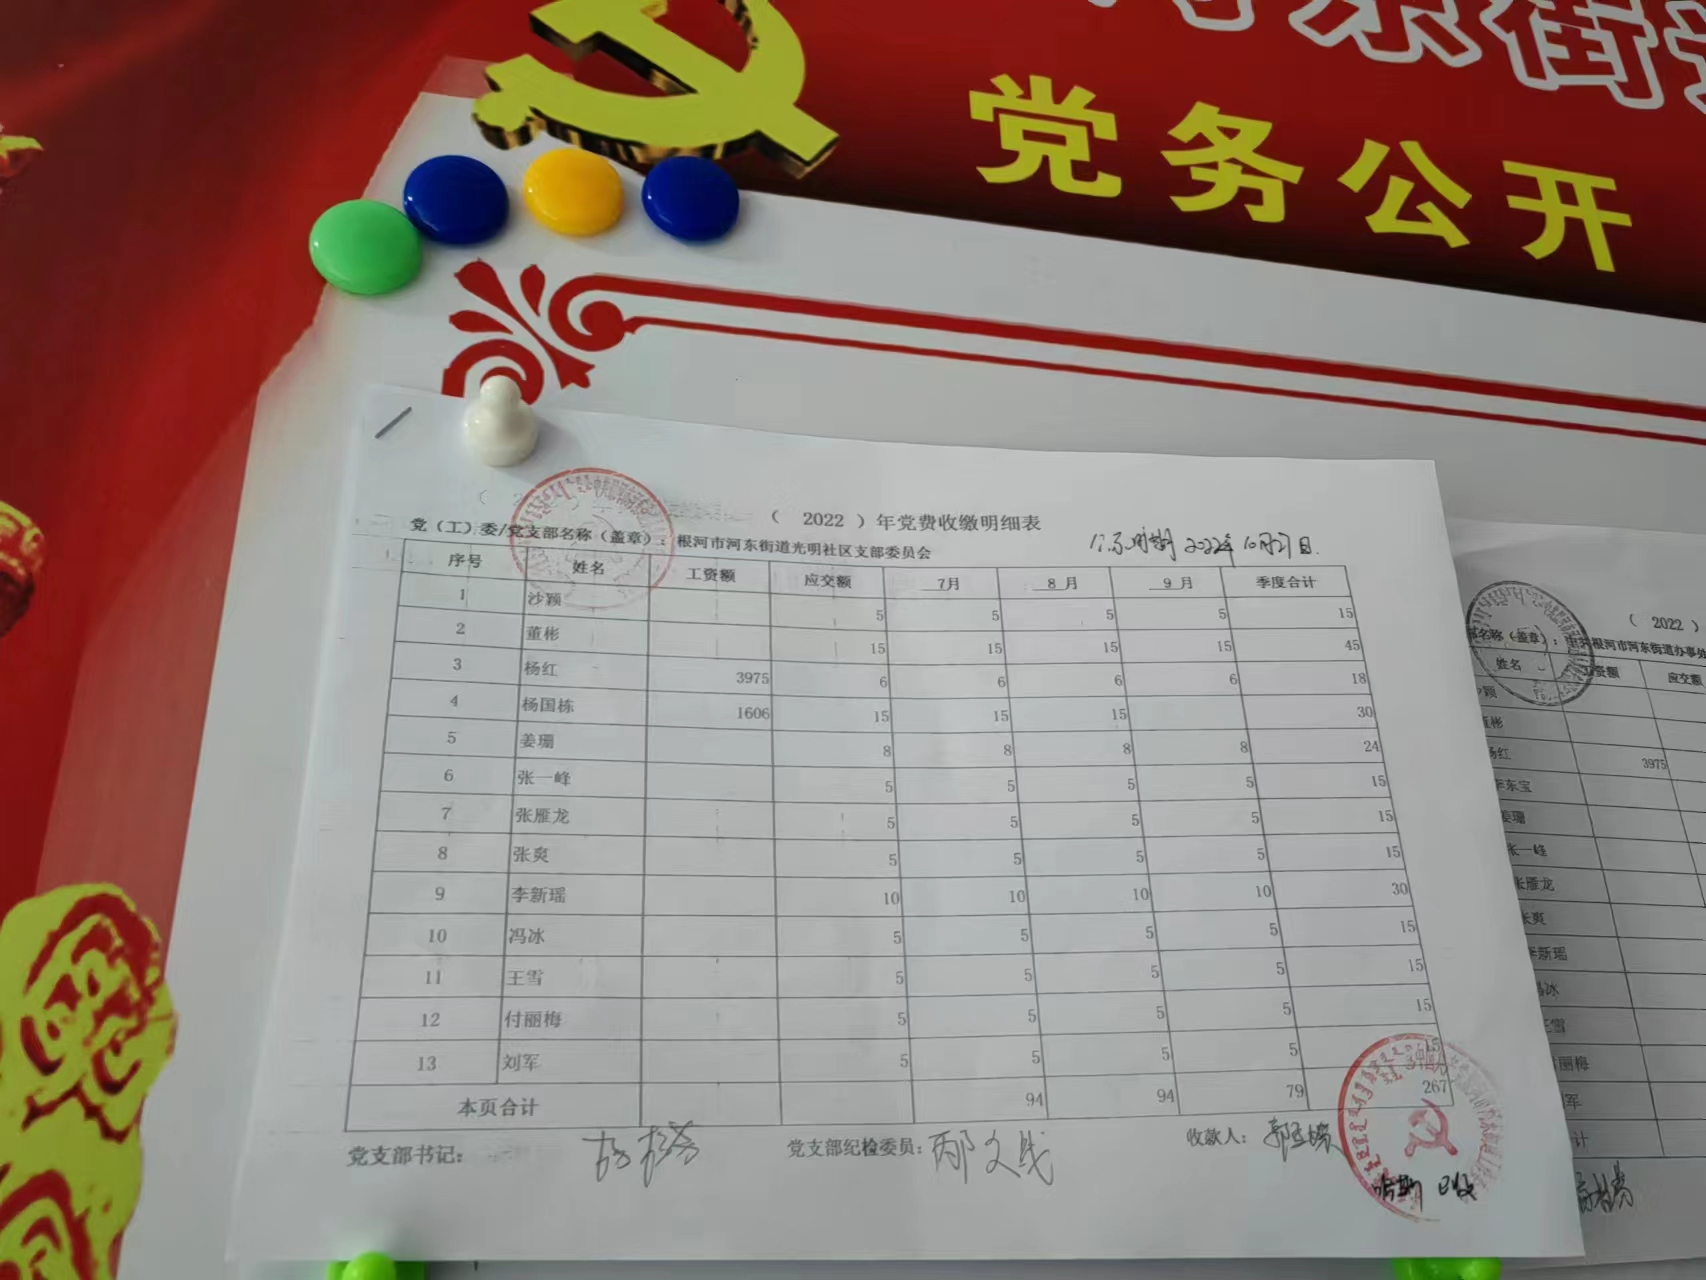 党务公开
（ 2022 ）年党费收缴明细表
党（工）委/党支部名称（盖章）：根河市河东街道光明社区支部委员会
2022年10月27日.
序号 姓名 工资额 应交额 7月 8月 9月 季度合计
1 沙颖 5 5 5 5 15
2 董彬 15 15 15 15 45
3 杨红 3975 6 6 6 6 18
4 杨国栋 1606 15 15 15 30
5 姜珊 8 8 8 8 24
6 张一峰 5 5 5 5 15
7 张雁龙 5 5 5 5 15
8 张爽 5 5 5 5 15
9 李新瑶 10 10 10 10 30
10 冯冰 5 5 5 5 15
11 王雪 5 5 5 5 15
12 付丽梅 5 5 5 5 15
13 刘军 5 5 5 5 15
本页合计 94 94 79 267
党支部书记： 党支部纪检委员： 收款人：
已收
（ 2022 ）
部名称（盖章）：中共根河市河东街道办事处
姓名 工资额 应交额
沙颖
董彬
杨红 3975
李东宝
姜珊
张一峰
张雁龙
张爽
李新瑶
冯冰
王雪
付丽梅
刘军
计